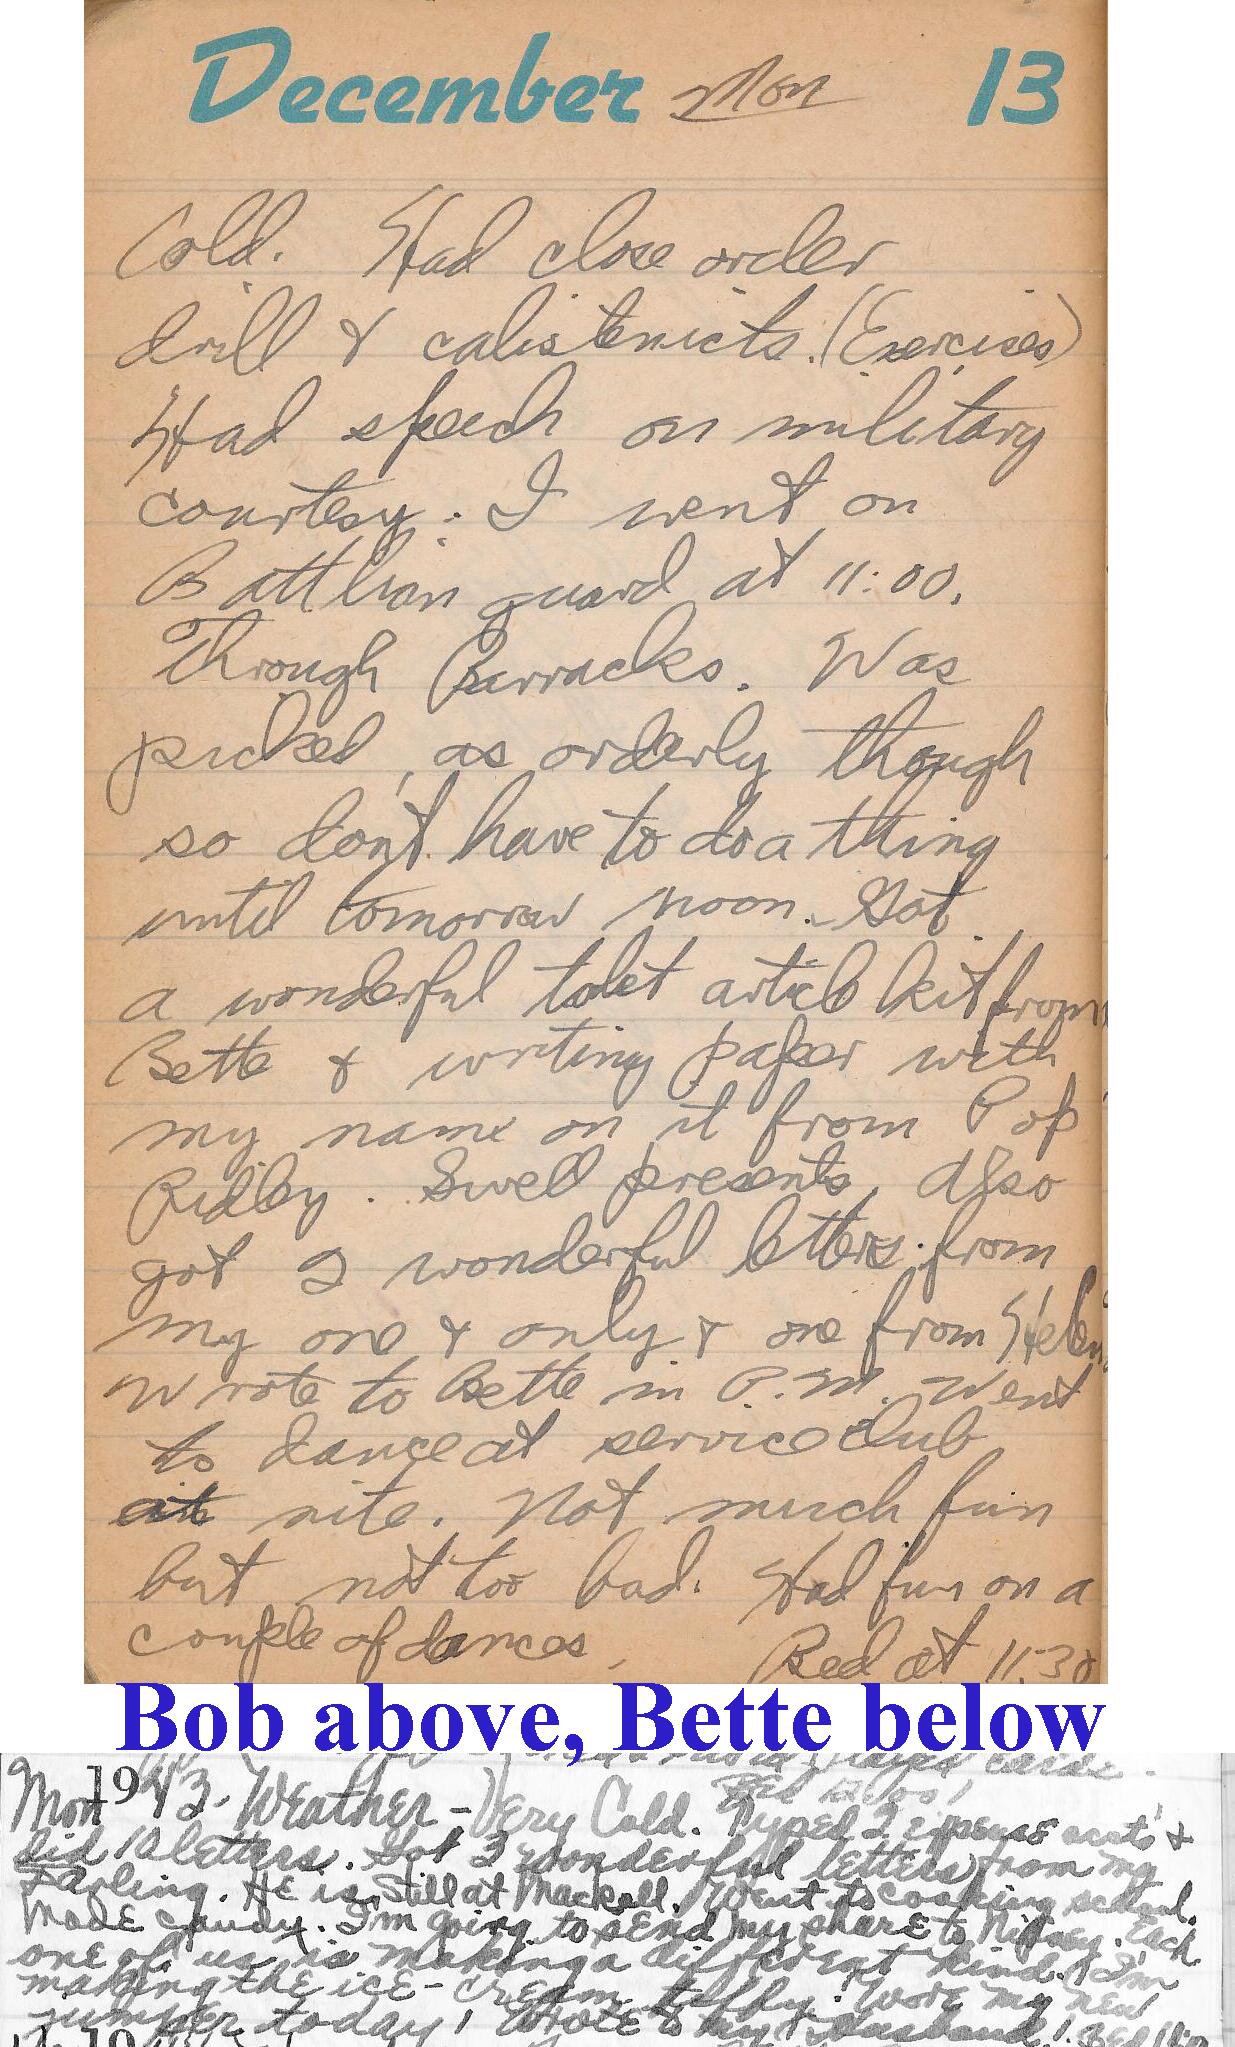 December Mon 13
Cold. Had close order
drill & calistenicts. (Exercises)
Had speech on military
courtesy. I went on
Battlion guard at 11:00.
Through Barracks. Was
picked as orderly though
so don't have to do a thing
until tomorrow noon. Got
a wonderful tolet article kit from
Bette & writing paper with
my name on it from Pop
Ridley. Swell presents. Also
got 2 wonderful letters from
my one & only & one from Helen
Wrote to Bette in P.M. Went
to dance at service club
at nite. Not much fun
but not too bad. Had fun on a
couple of dances. Bed at 11:30
Bob above, Bette below
played cards.
Mon 1943. Weather - Very Cold. Typed 2 expense accts &
did 10 letters. Got 3 wonderful letters from my
Darling. He is still at Mackall. Went to cooking school.
Made candy. I'm going to send my share to Each
one of us is making a different kind. I'm
making the ice-cream taffy. Wore my new
jumper today! Wrote to my husband! Bed
19